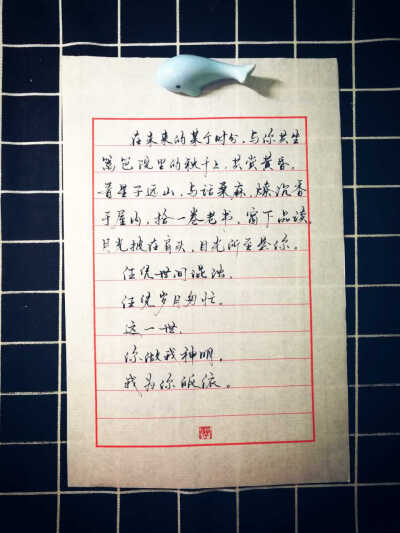 在未来的某个时分，与你共坐
篱笆院里的秋千上，共赏黄昏。
看星子远山，与话桑麻，燎沉香
于屋内，拾一卷老书，窗下品读，
月光披在肩头，目光所至是你。
任凭世间混浊，
任凭岁月匆忙。
这一世，
你做我神明，
我为你皈依。